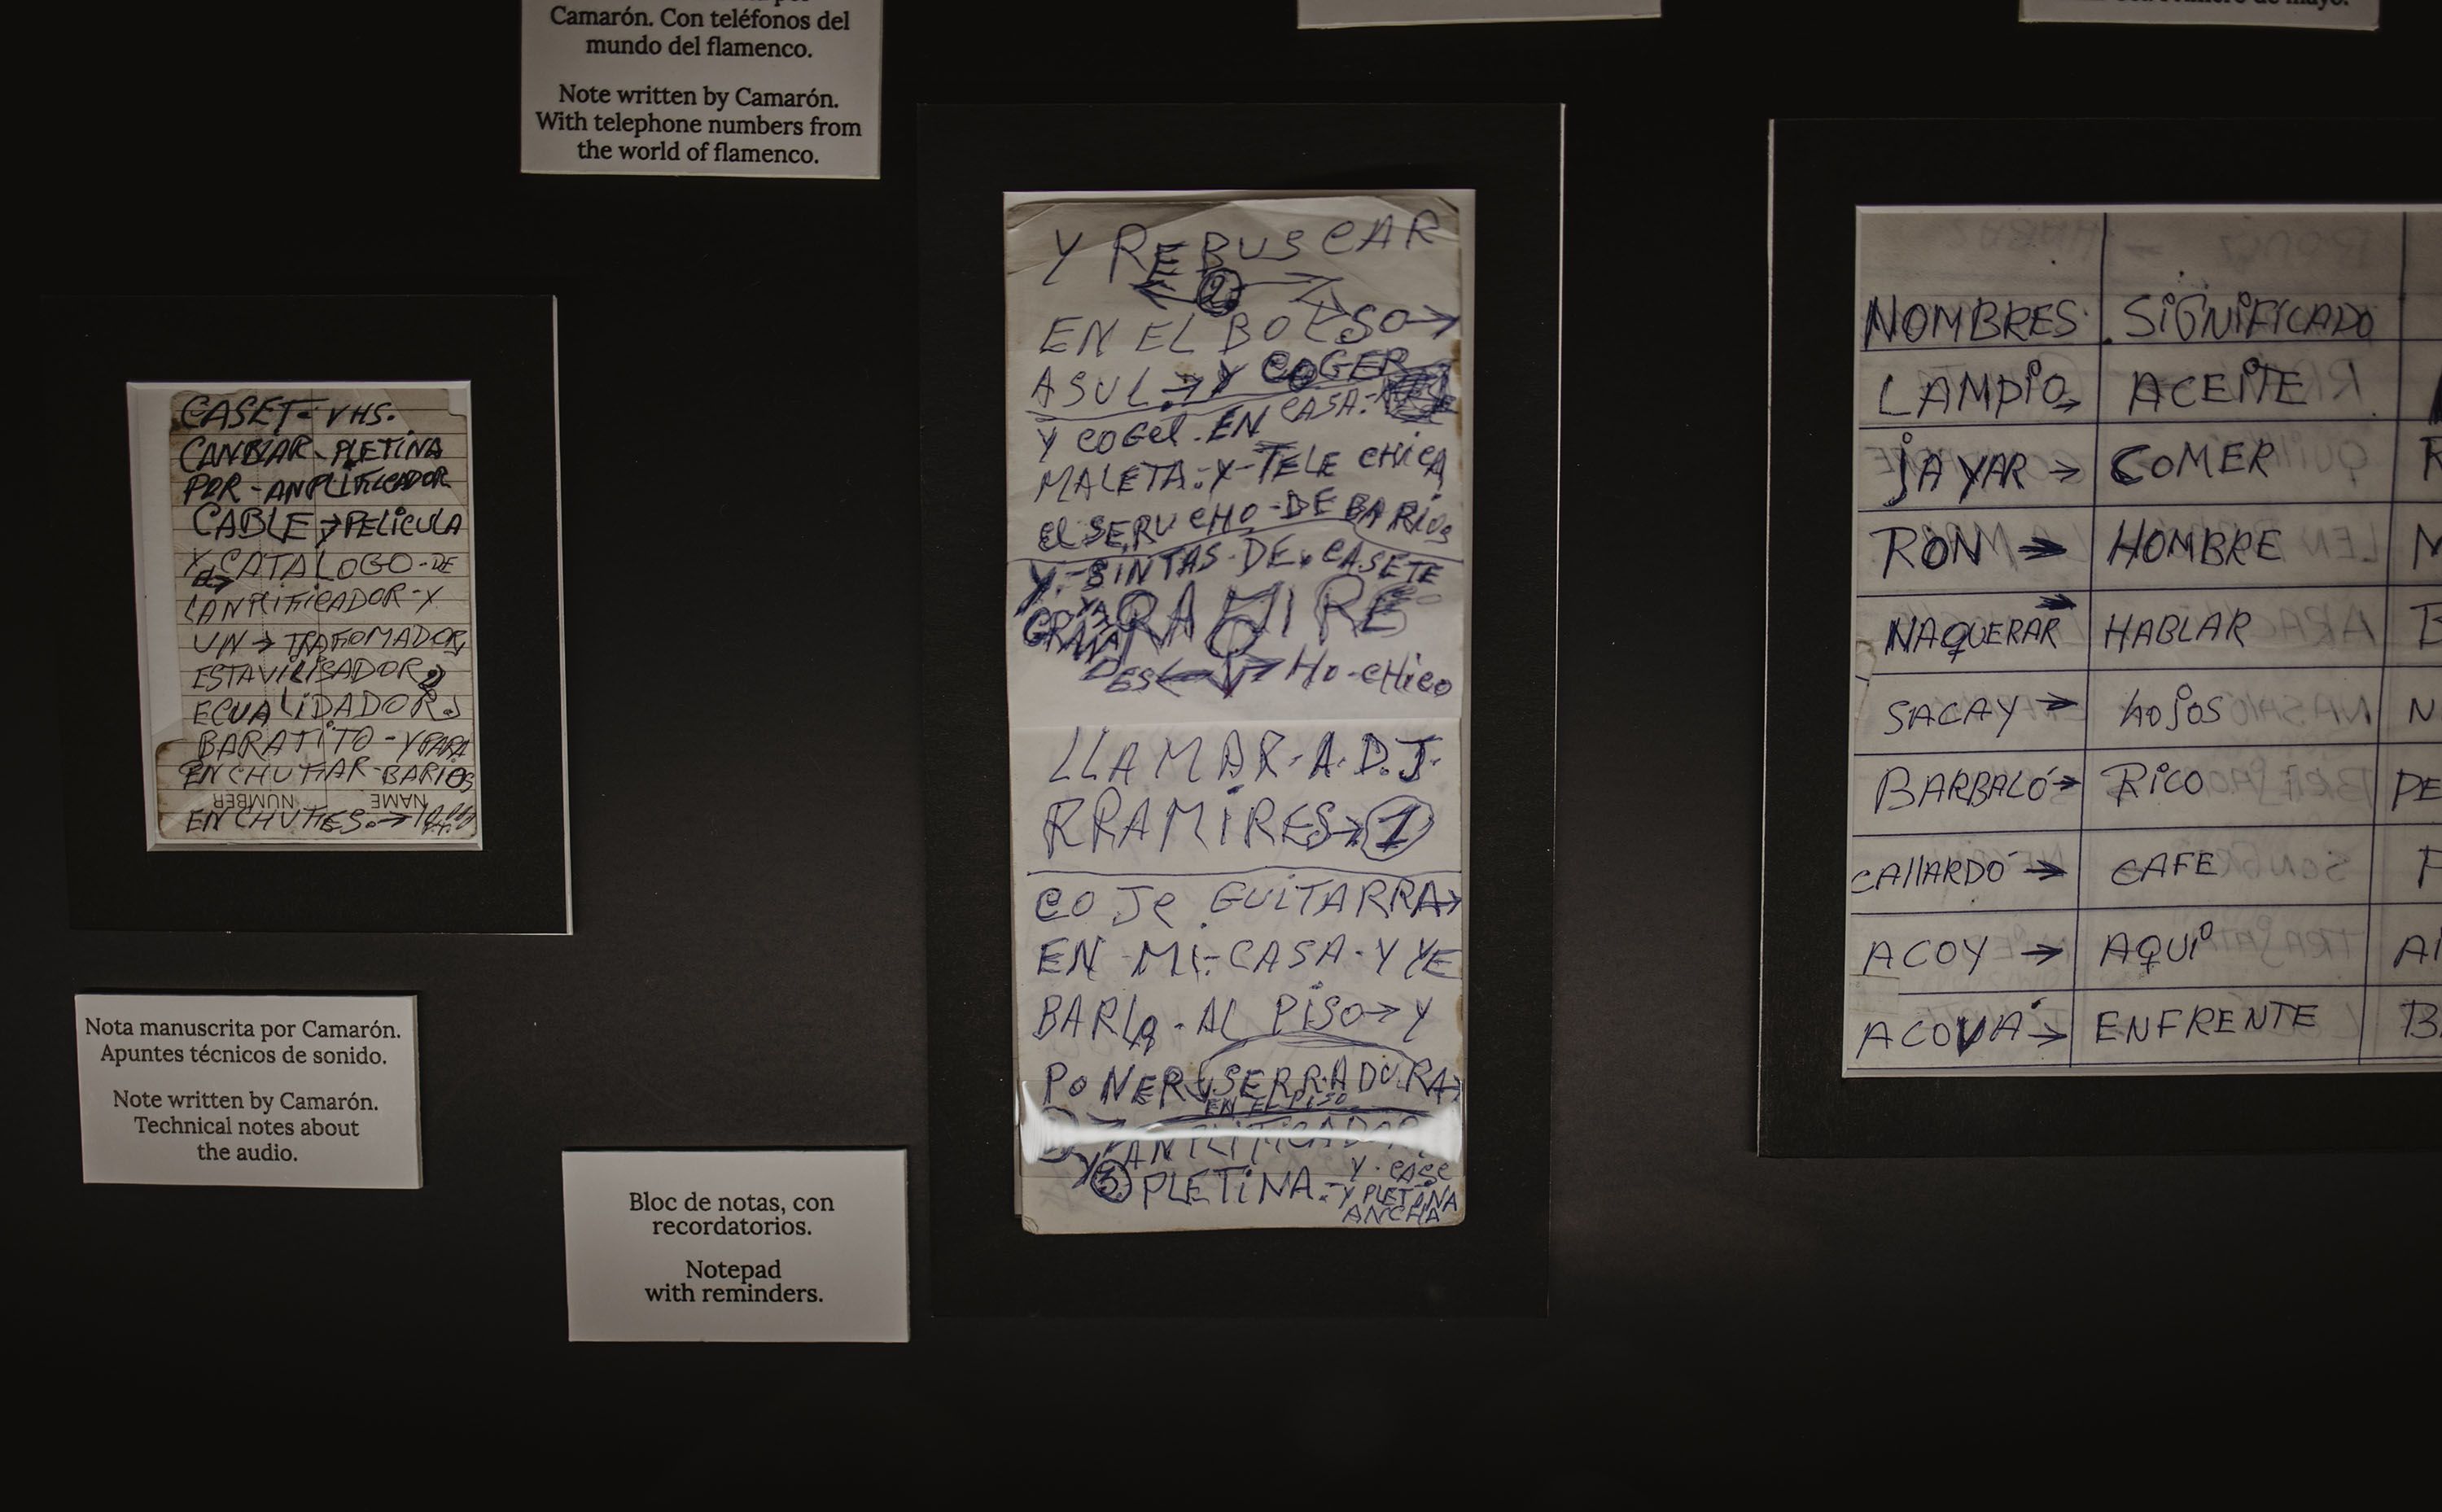 Camarón. Con teléfonos del
mundo del flamenco.
Note written by Camarón.
With telephone numbers from
the world of flamenco.
CASET- VHS.
CANBIAR - PLETINA
POR - ANPLIFICADOR
CABLE → PELICULA
Y CATALOGO - DE
LANPLIFICADOR - Y
UN → TRAFOMADOR,
ESTAVILISADOR
ECUALIDADOR
BARATITO - Y PARA
ENCHUFIAR - BARIOS
NUMBER NAME
ENCHUFES. →
Nota manuscrita por Camarón.
Apuntes técnicos de sonido.
Note written by Camarón.
Technical notes about
the audio.
Bloc de notas, con
recordatorios.
Notepad
with reminders.
Y REBUSCAR
← 2 →
EN EL BOLSO →
ASUL → Y COGER
Y COGEL . EN CASA.
MALETA . Y - TELE CHICA
El SERUCHO - DE BARIOS
Y - SINTAS - DE . CASETE
GRANA RAMIRE
DES ← → Ho - CHICO
LLAMAR - A . D. J.
RRAMIRES → 1
COJE GUITARRA →
EN MI - CASA - Y YE
BARLA - AL PISO → Y
PONER SERRADURA →
EN EL PISO
ANPLIFICADOR
Y 3 PLETINA . - Y . CASE
Y PLETINA
ANCHA
NOMBRES . SIGNIFICADO
LAMPIO → ACEITE
JAYAR → COMER
RON → HOMBRE
NAQUERAR → HABLAR
SACAY → hojos
BARBALÓ → RICO
CAllARDÓ → CAFE
ACOY → AQUI
ACOVÁ → ENFRENTE